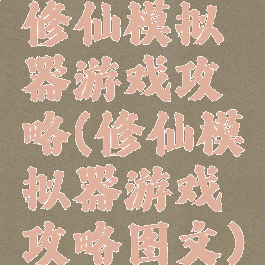 修仙模拟
器游戏攻
略(修仙模
拟器游戏
攻略图文)